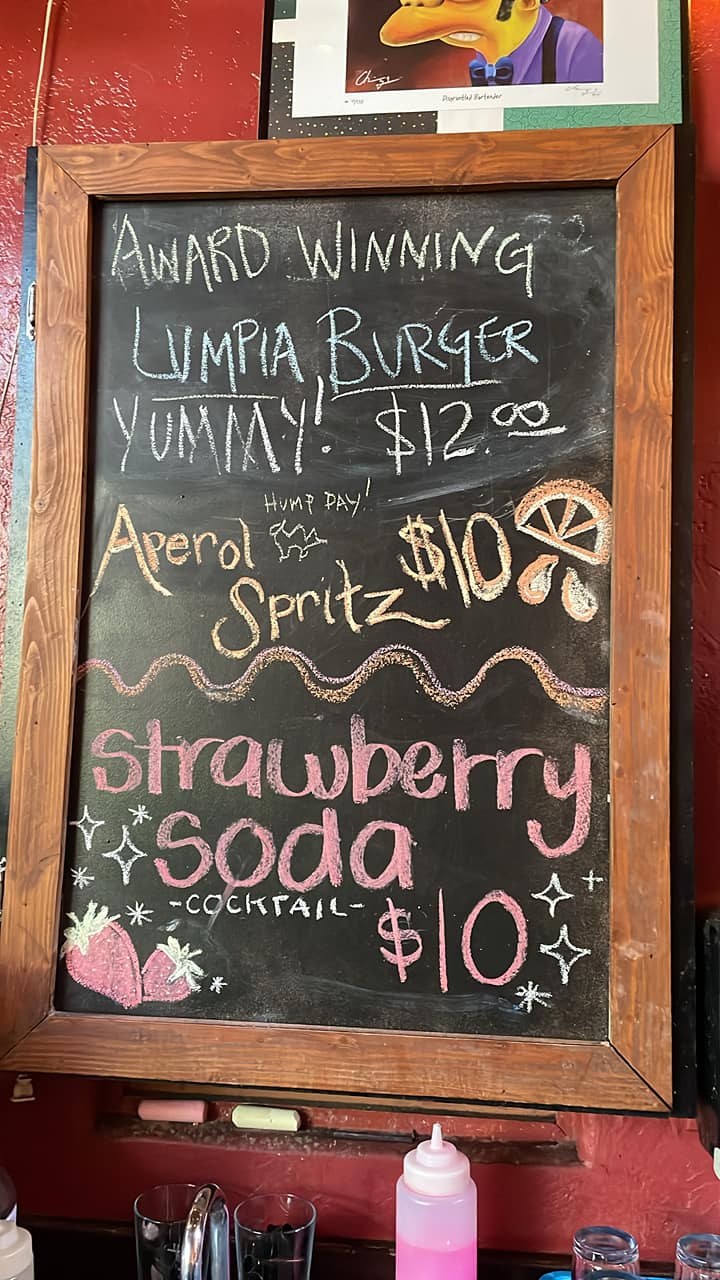 Disgruntled Bartender
AWARD WINNING
LUMPIA BURGER
YUMMY! $12.00
HUMP DAY!
Aperol $10
Spritz
strawberry
soda
-COCKTAIL-
$10